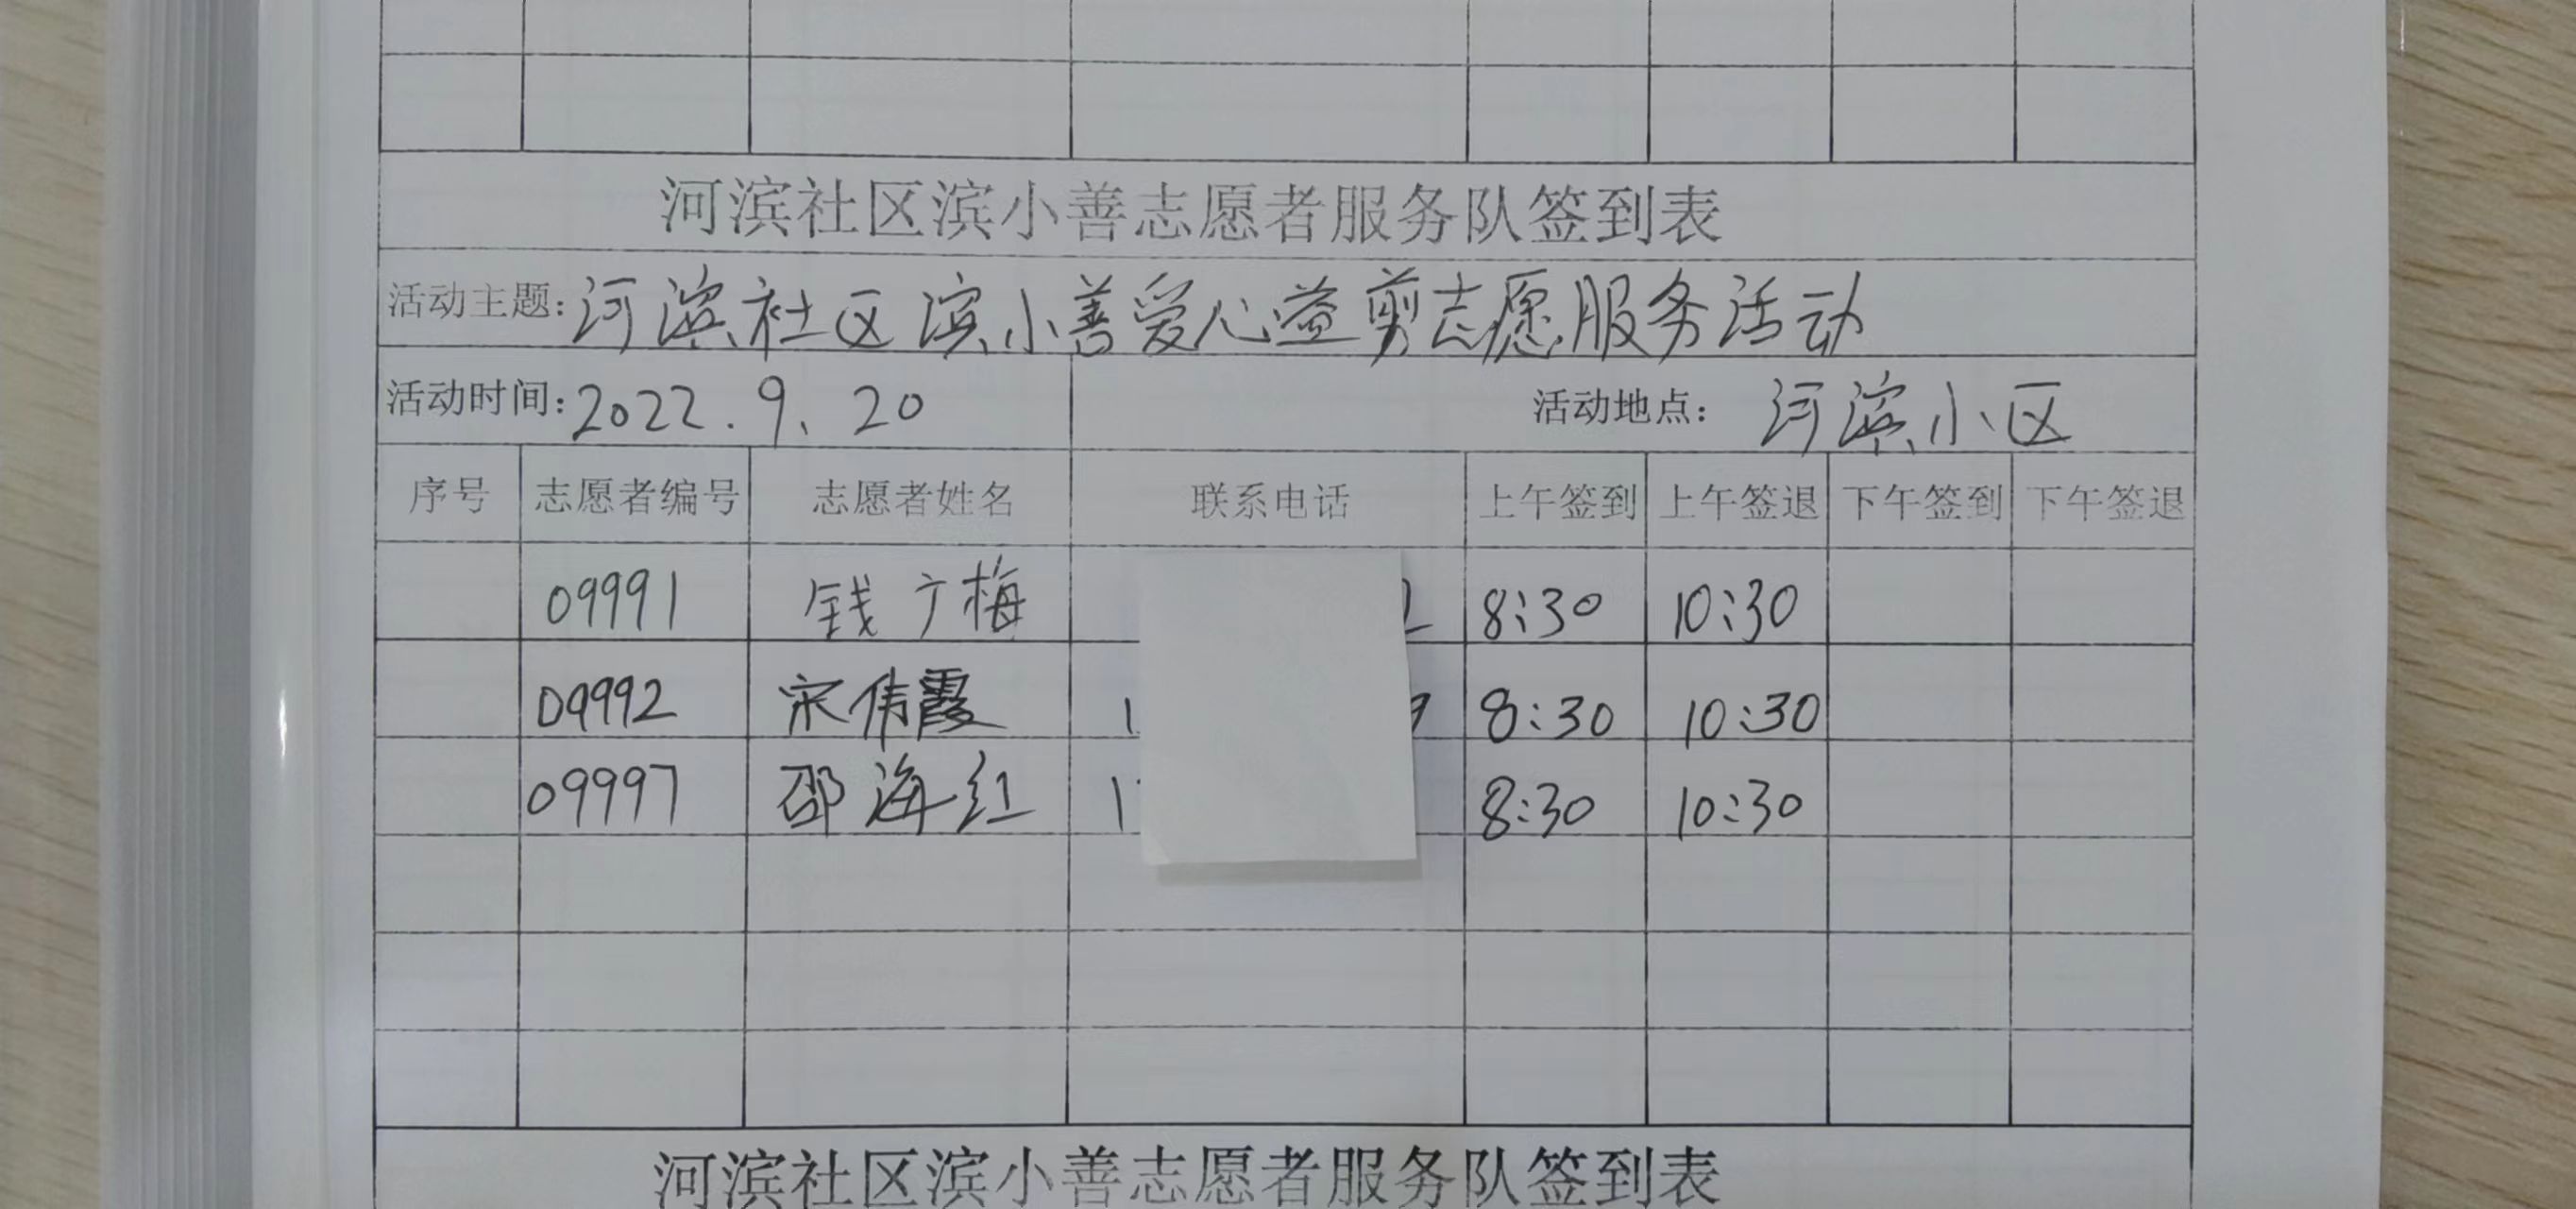 河滨社区滨小善志愿者服务队签到表
活动主题：河滨社区滨小善爱心益剪志愿服务活动
活动时间：2022.9、20 活动地点： 河滨小区
序号 志愿者编号 志愿者姓名 联系电话 上午签到 上午签退 下午签到 下午签退
09991 钱广梅 2 8:30 10:30
09992 宋伟霞 1 9 8:30 10:30
09997 邵海红 1 8:30 10:30
河滨社区滨小善志愿者服务队签到表